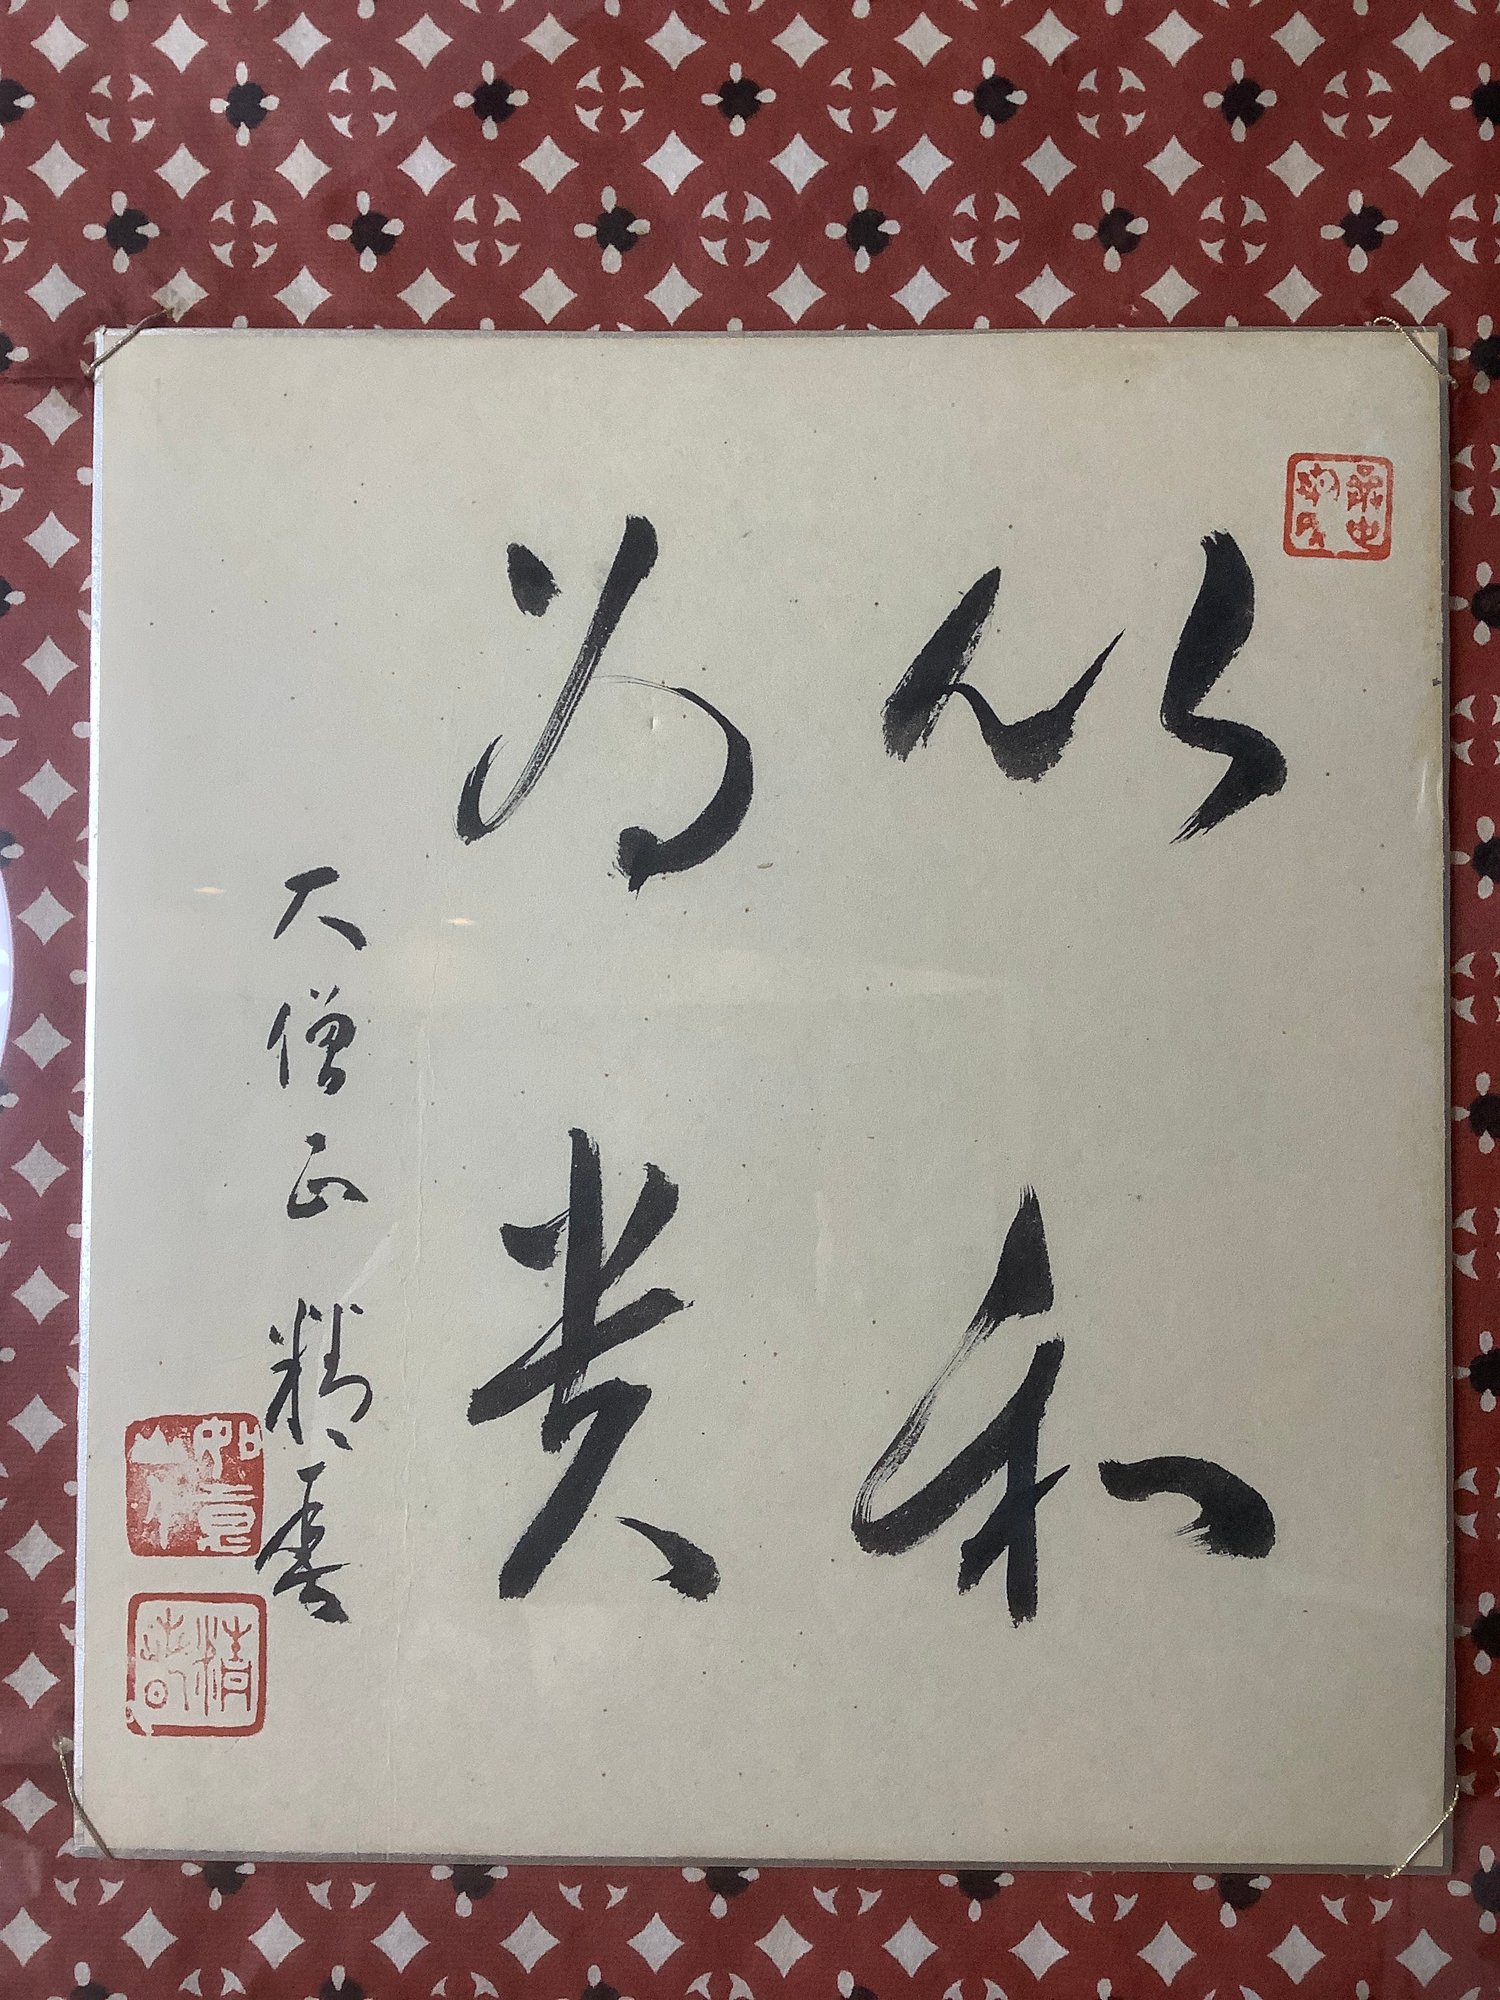 以和
為貴
大僧正 精春